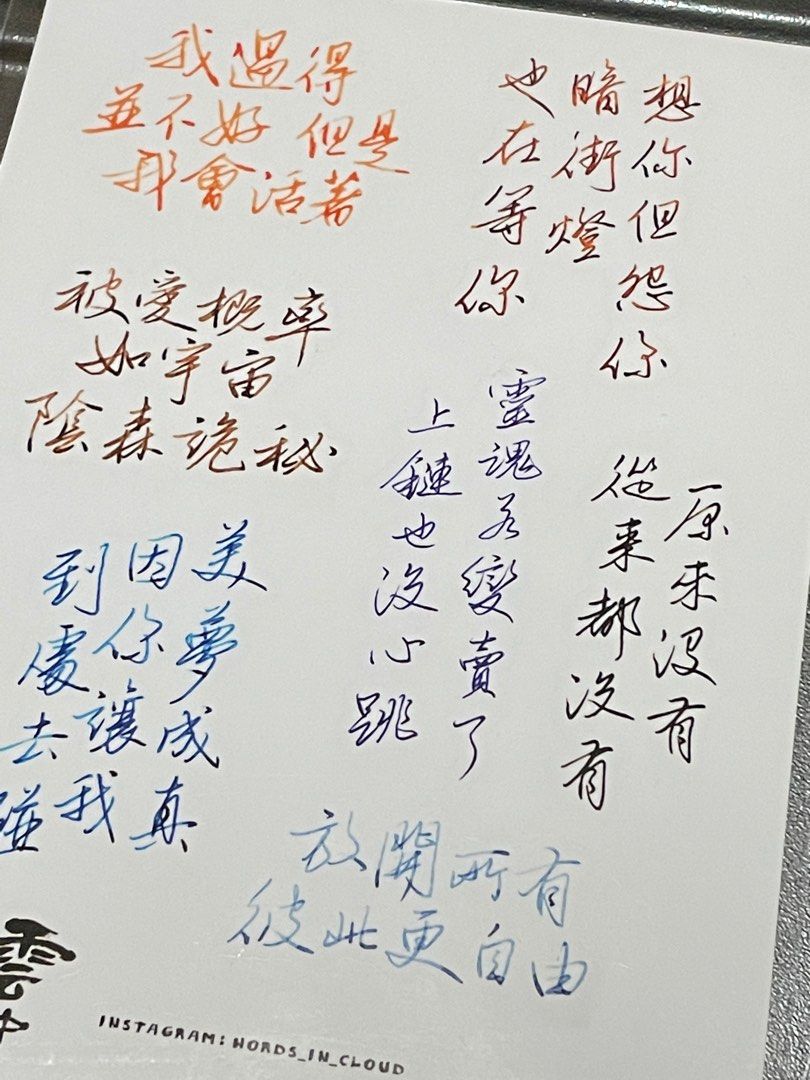 我過得
並不好 但是
我會活著
想你但怨你
暗街燈
也在等你
被愛概率
如宇宙
陰森詭秘
靈魂若變賣了
上鏈也沒心跳
原來沒有
從来都沒有
美夢成真
因你讓我
到處去碰
放開所有
彼此更自由
雲中
INSTAGRAM: WORDS_IN_CLOUD